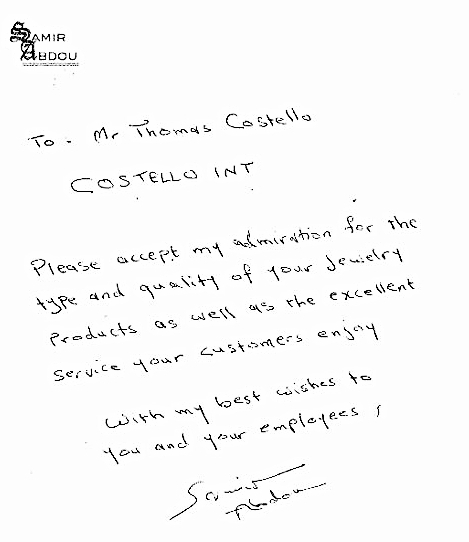 SAMIR
ABDOU
To. Mr Thomas Costello
COSTELLO INT
Please accept my admiration for the
type and quality of your Jewelry
Products as well as the excellent
service your customers enjoy
With my best wishes to
you and your employees,
Samir
Abdou